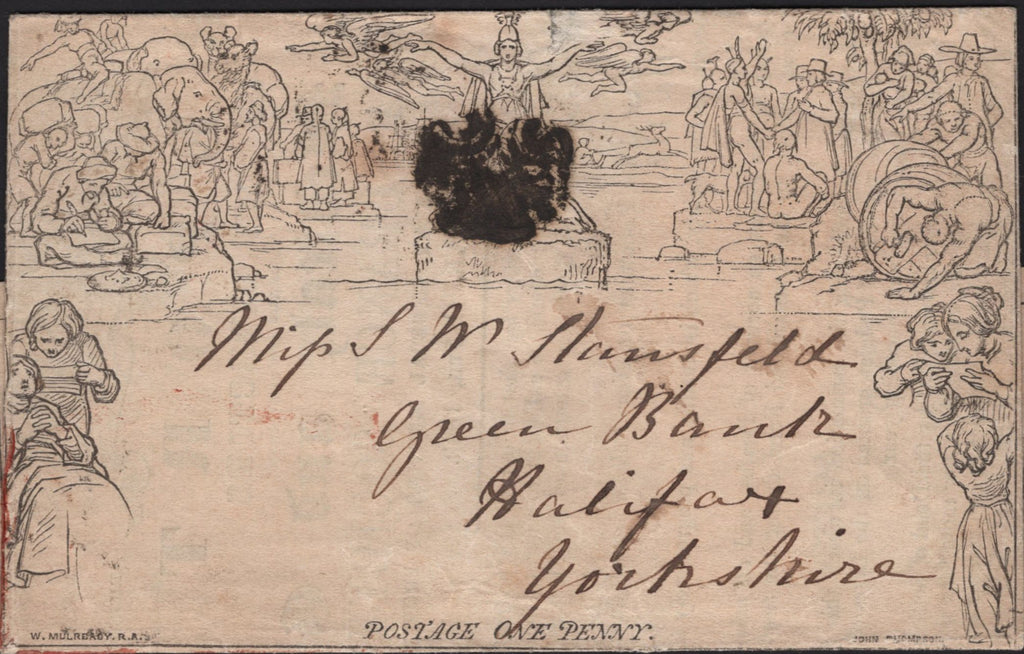 Miss S W Stansfeld
Green Bank
Halifax
Yorkshire
W. MULREADY. R.A.
POSTAGE ONE PENNY.
JOHN THOMPSON.